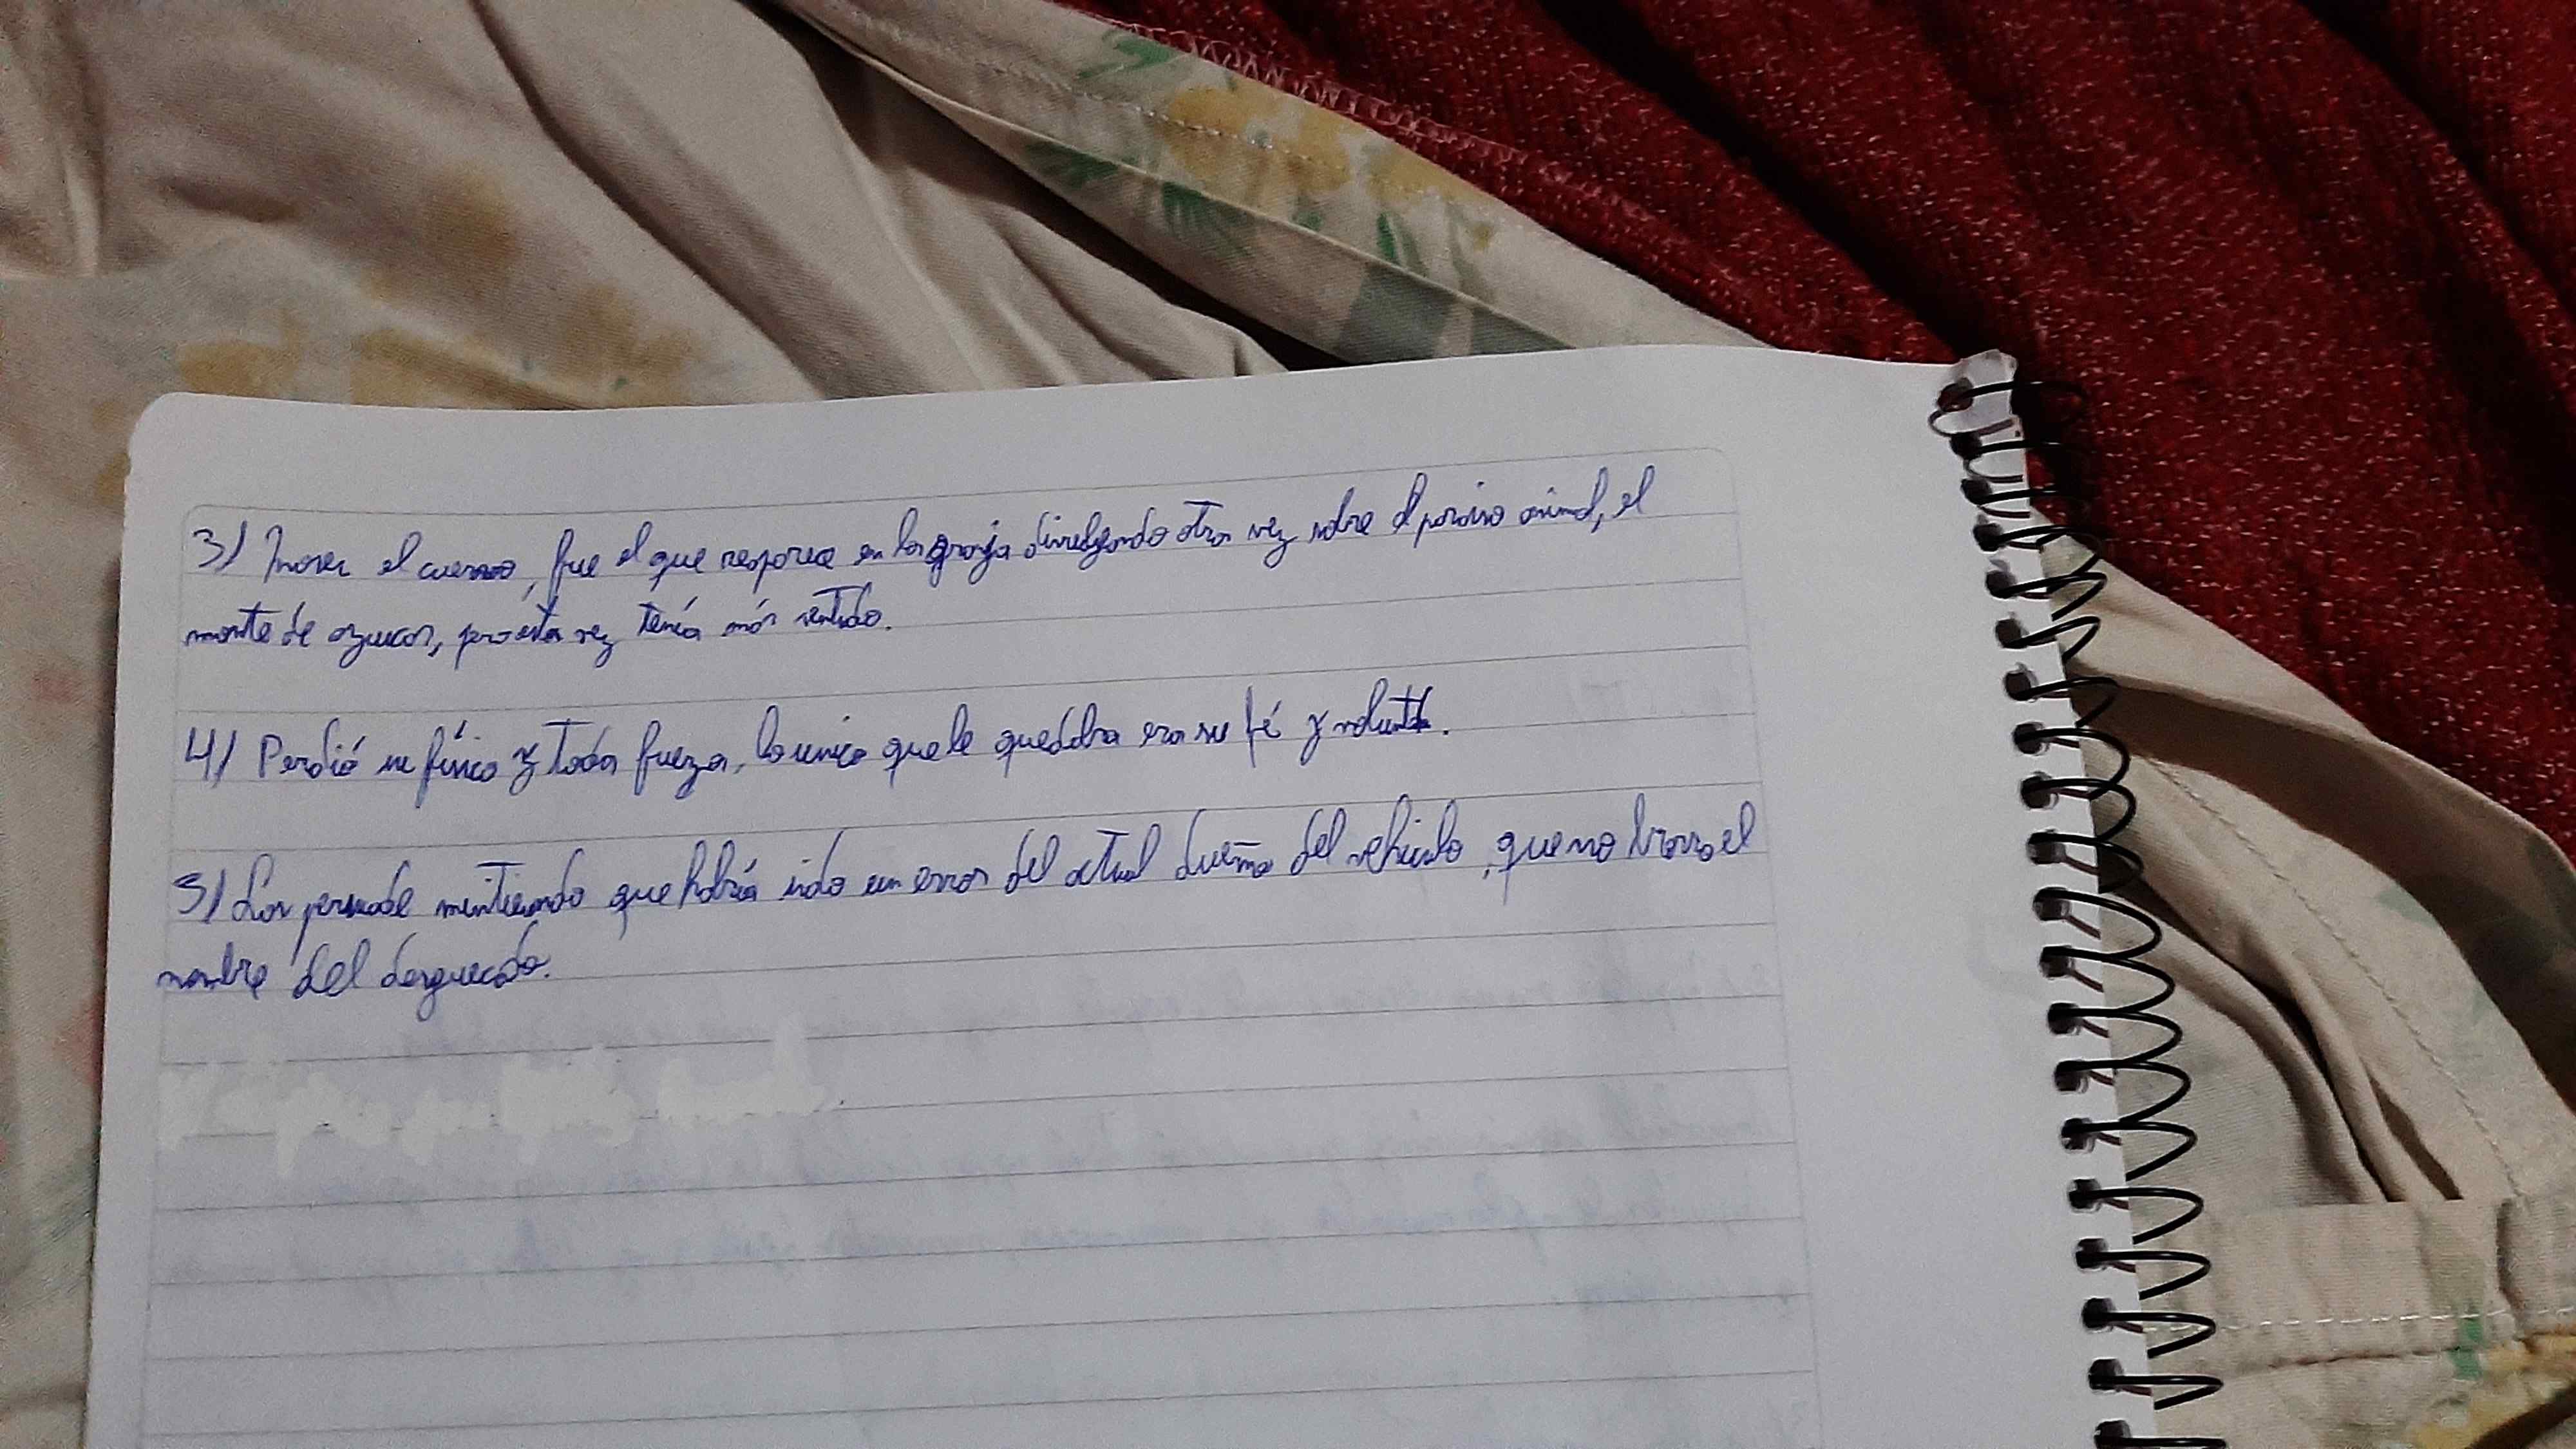 3) Moses el cuervo, fue el que reaparece en la granja divulgando otra vez sobre el paraiso animal, el
monte de azucar, pero esta vez tenía más sentido.
4) Perdió su físico y toda fuerza, lo unico que le quedaba era su fé y
5) Los persuade mintiendo que habría sido un error del actual dueño del vehiculo, que no borro el
nombre del